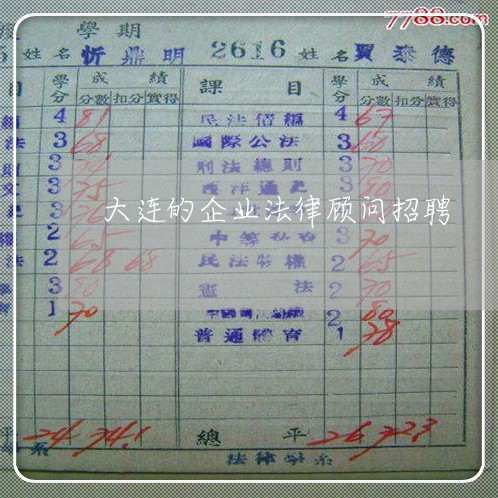 7788.com
學期
姓名 忻鼎明 2616 姓名 賈泰德
目 學分 成績 課目 學分 成績
分數 扣分 實得 分數 扣分 實得
4 81 民法債編 4 67
法 3 68 國際公法 3 60
3 刑法總則 3 70
3 75 西洋通史 3 80
大连的企业法律顾问招聘
2 65 3 70
法 2 68 68 民法物權 2 65
3 80 憲法 2 70
1 70 2 80
普通體育 1 78
平 24 74.1 總平 26 72.3
系 法律學系